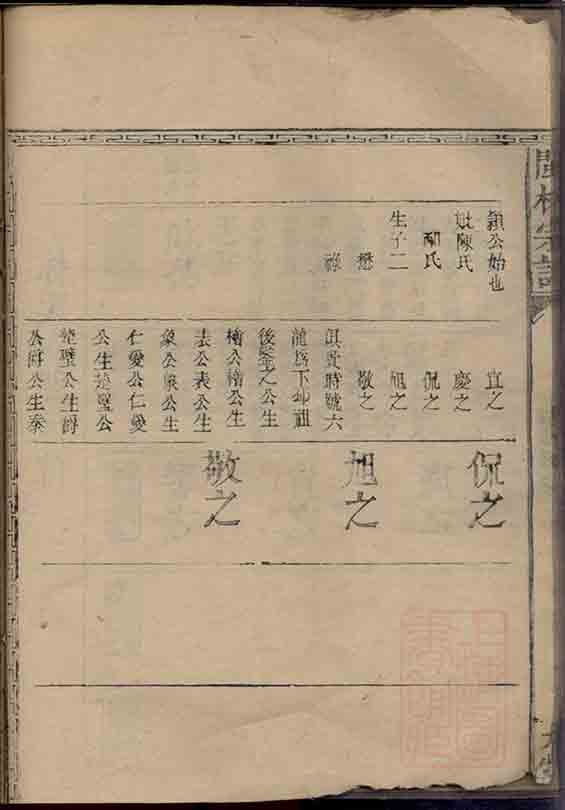 穎公始也
妣陳氏
鄺氏
生子二
懋
祿
宜之
慶之
侃之
旭之
敬之
俱貴時號六
龍爲下邳祖
後鎣之公生
檜公檜公生
表公表公生
象公象公生
仁愛公仁愛
公生楚璧公
楚璧公生爵
公爵公生泰
侃之
旭之
敬之
宗譜